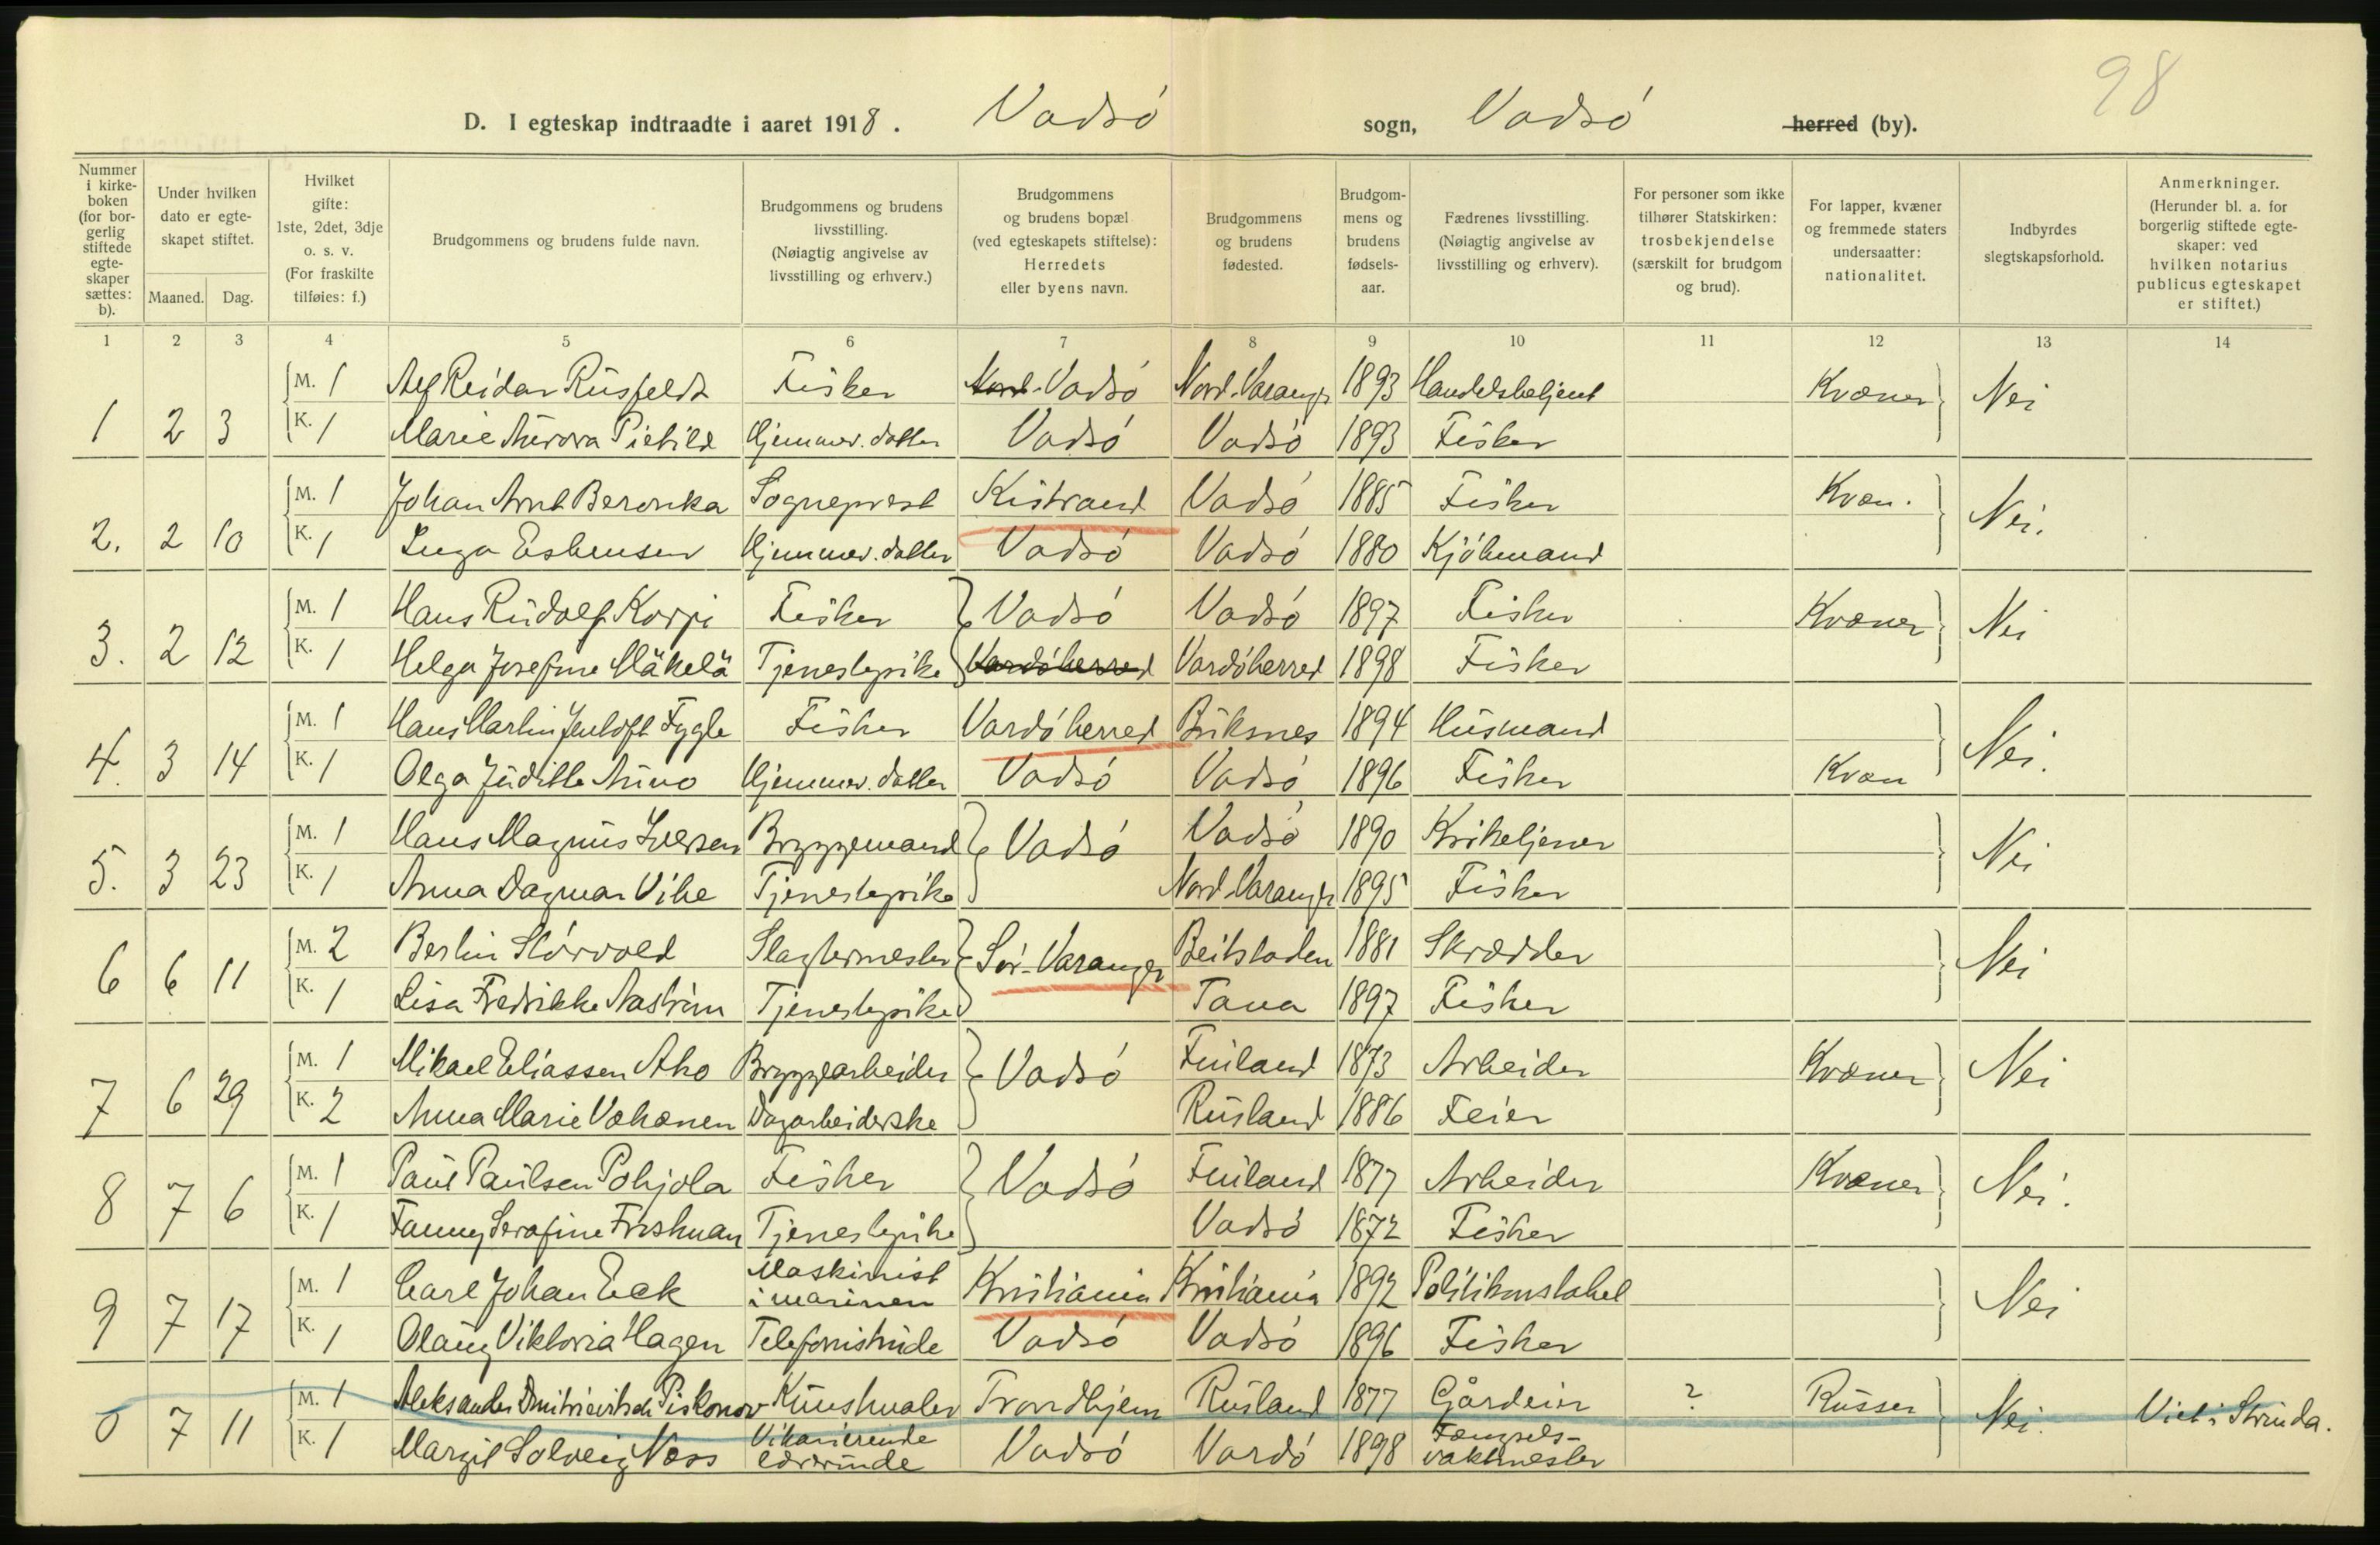 98
D. I egteskap indtraadte i aaret 1918. Vadsö sogn, Vadsö herred (by).
Nummer i kirkeboken (for borgerlig stiftede egteskaper sættes: b).
Under hvilken dato er egteskapet stiftet.
Maaned. Dag.
Hvilket gifte: 1ste, 2det, 3dje o. s. v. (For fraskilte tilføies: f.)
Brudgommens og brudens fulde navn.
Brudgommens og brudens livsstilling. (Nøiagtig angivelse av livsstilling og erhverv.)
Brudgommens og brudens bopæl (ved egteskapets stiftelse): Herredets eller byens navn.
Brudgommens og brudens fødested.
Brudgommens og brudens fødselsaar.
Fædrenes livsstilling. (Nøiagtig angivelse av livsstilling og erhverv).
For personer som ikke tilhører Statskirken: trosbekjendelse (særskilt for brudgom og brud).
For lapper, kvæner og fremmede staters undersaatter: nationalitet.
Indbyrdes slegtskapsforhold.
Anmerkninger. (Herunder bl. a. for borgerlig stiftede egteskaper: ved hvilken notarius publicus egteskapet er stiftet.)
1 2 3 4 5 6 7 8 9 10 11 12 13 14
M. 1 Alf Reidar Rusfeldt Fisker Nord-Vadsö Nord-Varangr 1893 Handelsbetjent Kvæner Nei
1 2 3 K. 1 Marie Aurora Pietilæ Hjemmev. datter Vadsö Vadsö 1893 Fisker
M. 1 Johan Arnt Beronka Sogneprest Kistrand Vadsö 1885 Fisker Kvæn. Nei.
2. 2 10 K. 1 Inga Esbensen Hjemmev. datter Vadsö Vadsö 1880 Kjöbmand
M. 1 Hans Rudolf Korpi Fisker Vadsö Vadsö 1897 Fisker Kvæner Nei
3. 2 12 K. 1 Helga Josefine Mäkelä Tjenestepike Vardöherred Vardöherred 1898 Fisker
M. 1 Hans Martin Jentoft Fygle Fisker Vardöherred Buksnes 1894 Husmand Nei.
4. 3 14 K. 1 Olga Juditte Auno Hjemmev. datter Vadsö Vadsö 1896 Fisker Kvæn
M. 1 Hans Magnus Iversen Bryggemand Vadsö Vadsö 1890 Kirketjener Nei
5. 3 23 K. 1 Anna Dagmar Vibe Tjenestepike Nord-Varangr 1895 Fisker
M. 2 Bertin Störvold Slagtermester Sör-Varanger Beitstaden 1881 Skrædder Nei
6 6 11 K. 1 Lisa Fredrikke Aaström Tjenestepike Tana 1897 Fisker
M. 1 Mikael Eliassen Aho Bryggearbeider Vadsö Finland 1873 Arbeider Kvæner Nei
7 6 29 K. 2 Anna Marie Vækænen Dagarbeiderske Rusland 1886 Feier
M. 1 Paul Paulsen Pohjola Fisker Vadsö Finland 1877 Arbeider Kvæner Nei.
8 7 6 K. 1 Fanny Serafine Friskman Tjenestepike Vadsö 1872 Fisker
M. 1 Carl Johan Eek Maskinist i marinen Kristiania Kristiania 1892 Politikonstabel Nei
9 7 17 K. 1 Olaug Viktoria Hagen Telefonistinde Vadsö Vadsö 1896 Fisker
M. 1 Aleksander Dmitrievitsch Piskonov Kunstmaler Trondhjem Rusland 1877 Gårdeier ? Russer Nei. Viet i Strinda.
0 7 11 K. 1 Margit Solveig Næss Vikarierende lærerinde Vadsö Vardö 1898 Fængselsvaktmester